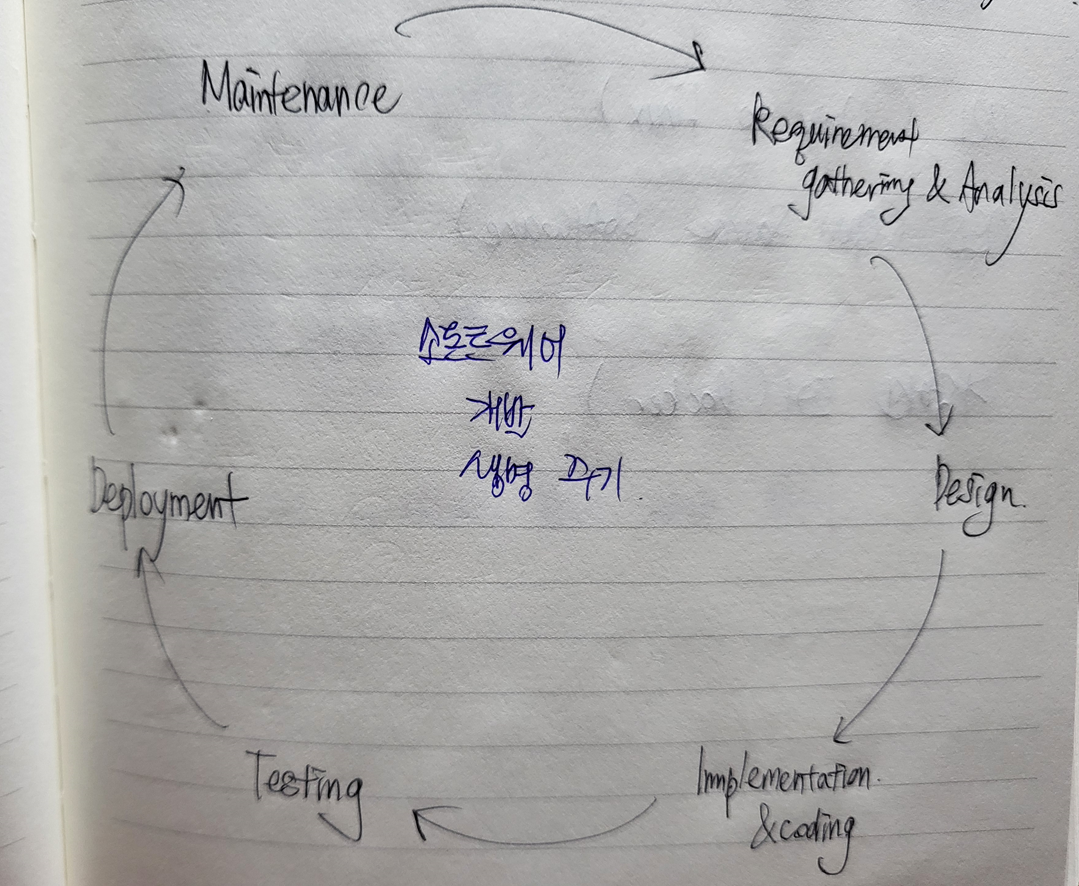 Maintenance
Requirement
gathering & Analysis
소프트웨어
개발
생명 주기
Deployment
Design
Testing
Implementation
& coding